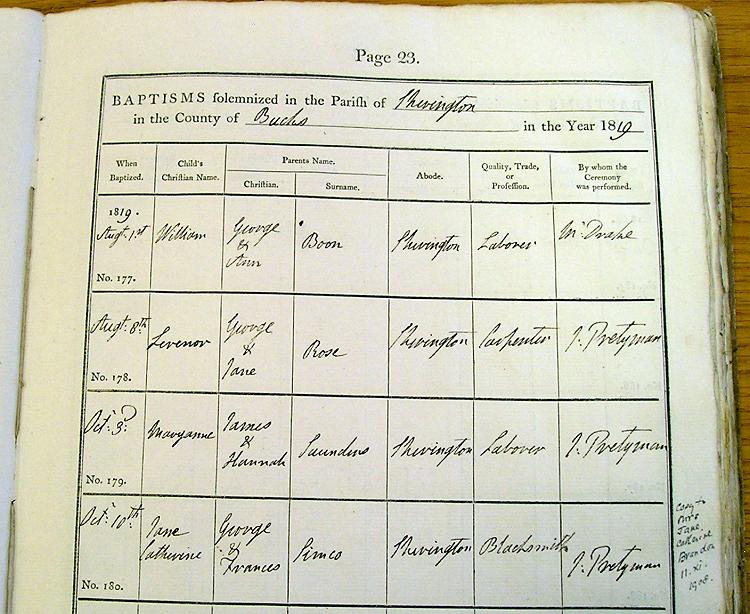 Page 23.
BAPTISMS solemnized in the Parish of Sherington
in the County of Bucks in the Year 1819
When Baptized.
Child's Christian Name.
Parents Name.
Christian.
Surname.
Abode.
Quality, Trade, or Profession.
By whom the Ceremony was performed.
1819.
Augt. 1st
No. 177.
William
George
&
Ann
Boon
Sherington
Laborer
Wm. Drake
Augt. 8th
No. 178.
Levenor
George
&
Jane
Rose
Sherington
Carpenter
J. Pretyman
Oct. 3d
No. 179.
Maryanne
James
&
Hannah
Saunders
Sherington
Laborer
J. Pretyman
Oct. 10th
No. 180.
Jane
Catherine
George
&
Frances
Simco
Sherington
Blacksmith
J. Pretyman
Copy to
Mrs
Jane
Catherine
Brandon
11. xi.
1908.